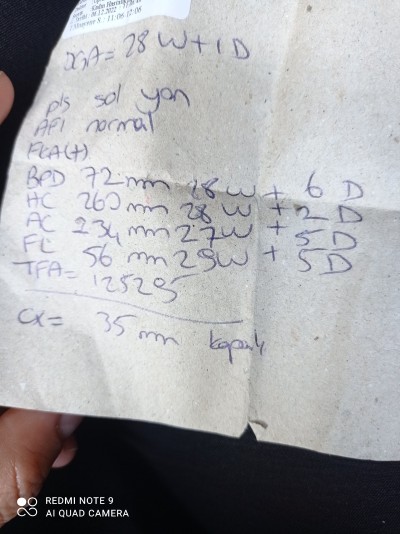 28W+1D
pls sol yan
AFI normal
FKA(+)
BPD 72mm 28W + 6D
HC 260mm 28W + 2D
AC 234mm 27W + 5D
FL 56mm 29W + 5D
TFA=
CX= 35mm kapalı
REDMI NOTE 9
AI QUAD CAMERA